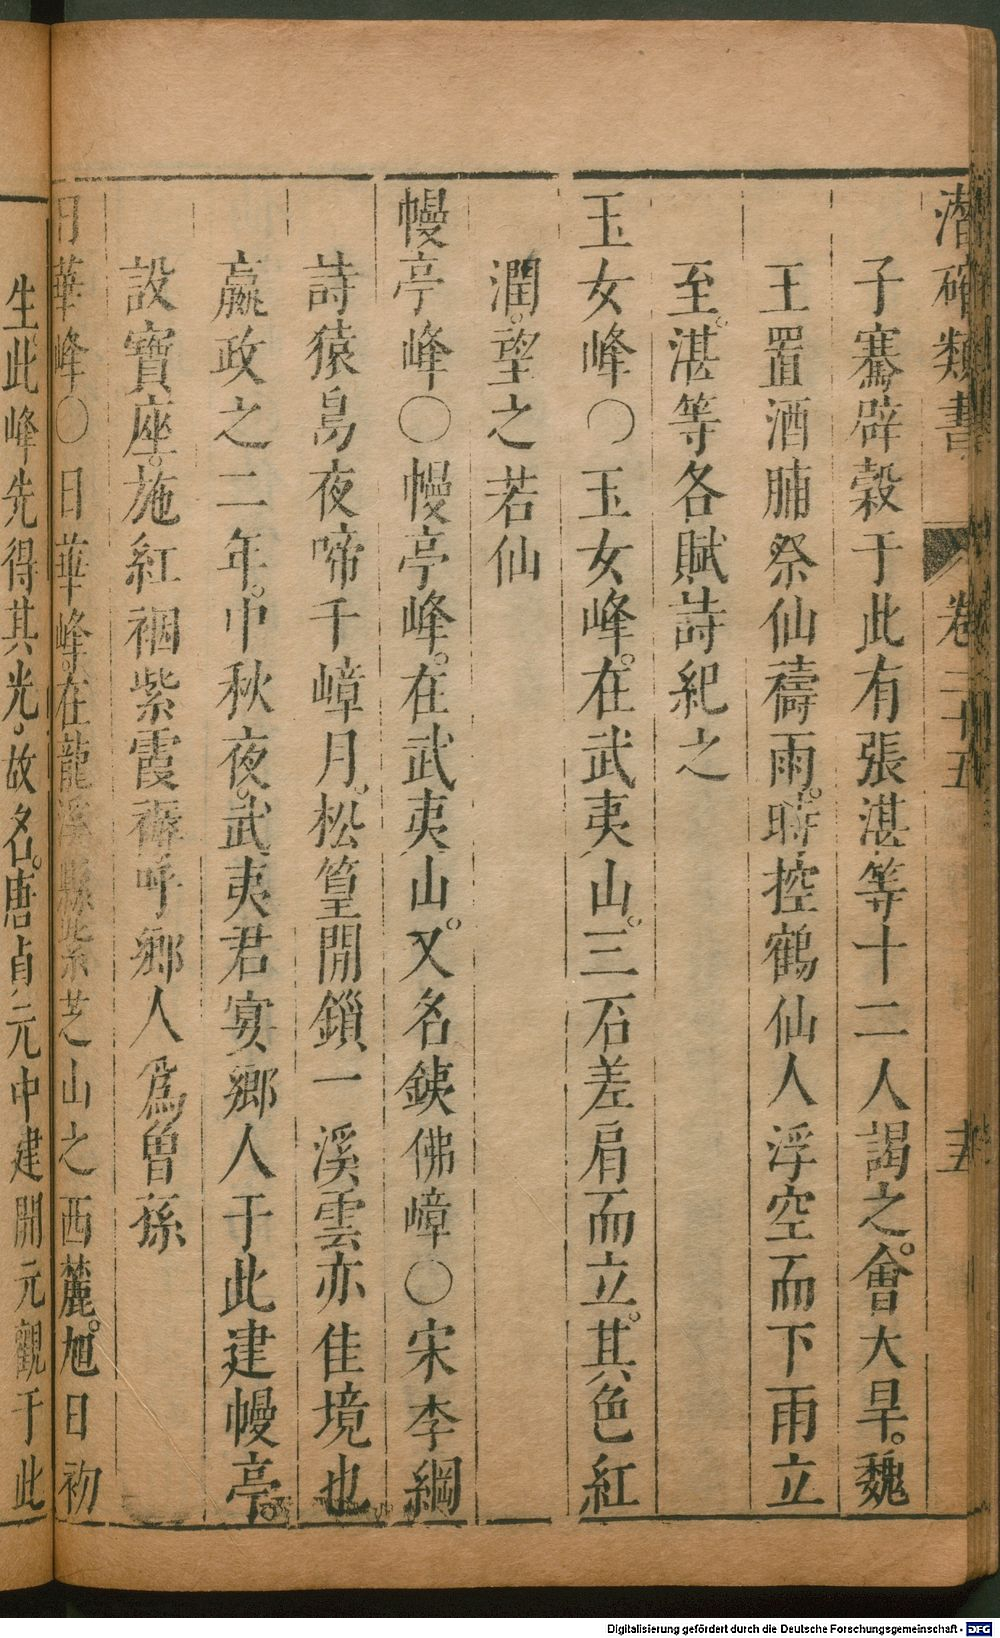 潛確類書 卷二十五 五
子騫辟穀于此有張湛等十二人謁之。會大旱。魏
王置酒脯祭仙禱雨。時控鶴仙人浮空而下雨立
至。湛等各賦詩紀之
玉女峰〇玉女峰。在武夷山。三石差肩而立。其色紅
潤。望之若仙
幔亭峰〇幔亭峰。在武夷山。又名鐵佛嶂〇宋李綱
詩猿鳥夜啼千嶂月。松篁閒鎖一溪雲亦佳境也
嬴政之二年。中秋夜。武夷君宴鄉人于此建幔亭。
設寶座。施紅裀紫霞褥呼鄉人為曾孫
日華峰〇日華峰。在龍溪縣紫芝山之西麓。旭日初
生此峰先得其光，故名。唐貞元中建開元觀于此
Digitalisierung gefördert durch die Deutsche Forschungsgemeinschaft - DFG